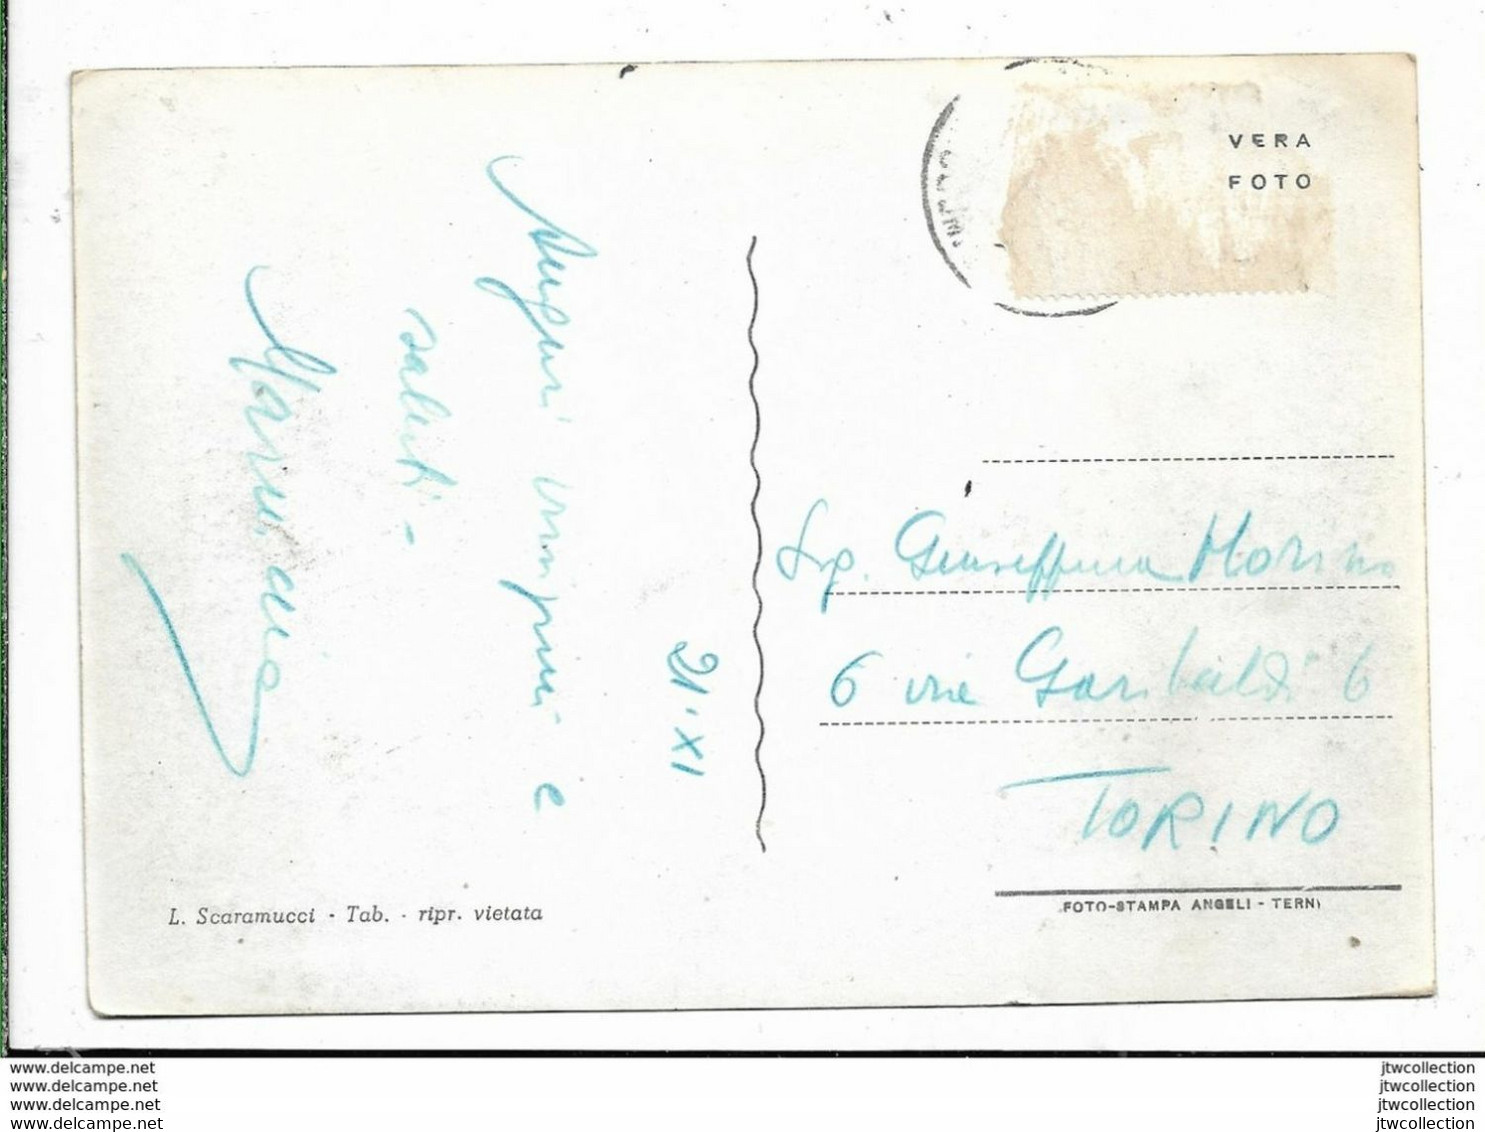 VERA
FOTO
21·XI
Auguri vivissimi e
saluti -
Sig. Giuseppina Morino
6 via Garibaldi 6
TORINO
L. Scaramucci - Tab. - ripr. vietata
FOTO-STAMPA ANGELI - TERNI
www.delcampe.net
www.delcampe.net
www.delcampe.net
www.delcampe.net
jtwcollection
jtwcollection
jtwcollection
jtwcollection